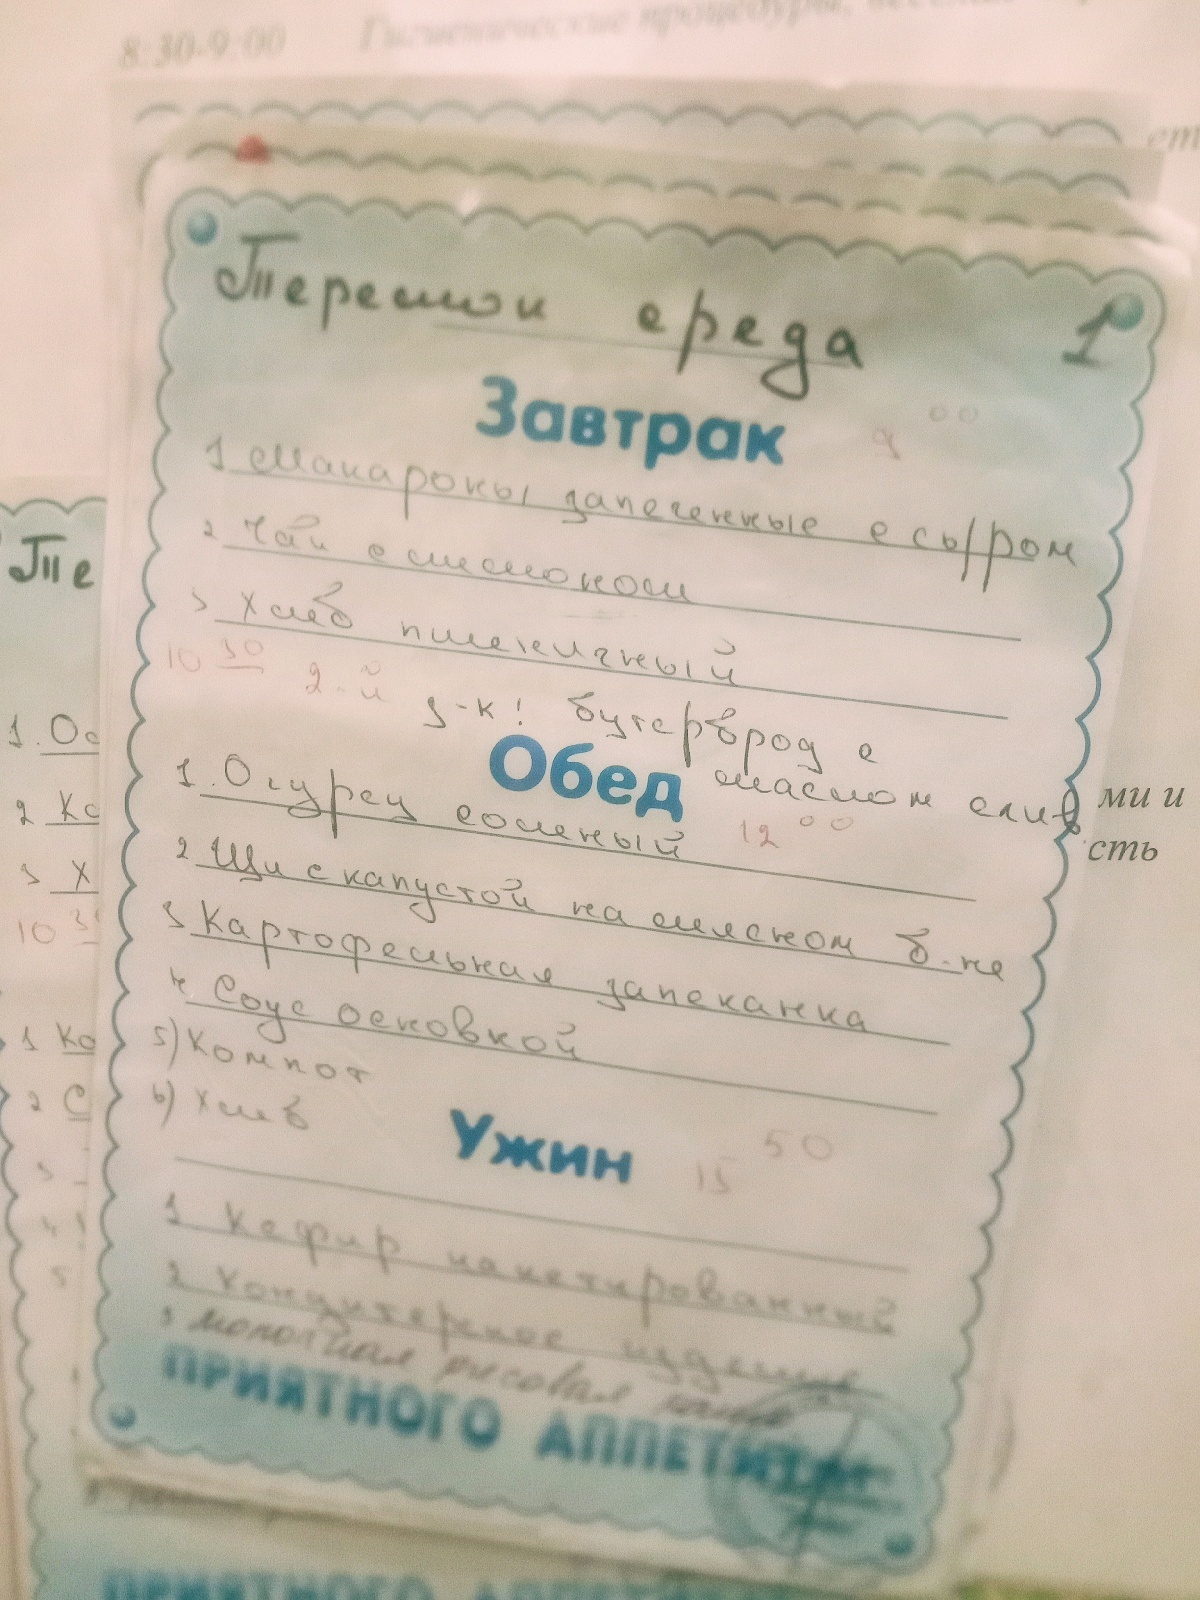 8:30-9:00 Гигиенические процедуры,
Теремок среда 1
Завтрак 9 00
1 Макароны запеченные с сыром
2 Чай с молоком
3 Хлеб пшеничный
10 30 2-й з-к! бутерброд с
Обед маслом слив
1. Огурец соленый 12 00
2 Щи с капустой на мясном б-не
3 Картофельная запеканка
4. Соус основной
5) Компот
6) Хлеб
Ужин 15 50
1 Кефир пакетированный
2 Кондитерское изделие
3 молочная рисовая каша
ПРИЯТНОГО АППЕТИТА!
Те
1. Ос
2 Ко
3 Х
10 3
1 Ко
2 С
3
4
5
ми и
сть
ет
ПРИЯТНОГО